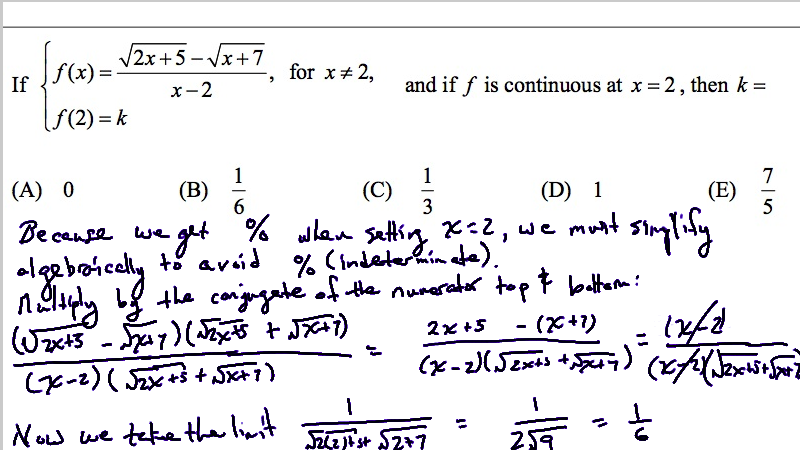 If { f(x) = (√(2x+5) − √(x+7))/(x−2), for x ≠ 2, and if f is continuous at x = 2, then k =
f(2) = k
(A) 0 (B) 1/6 (C) 1/3 (D) 1 (E) 7/5
Because we get 0/0 when setting x=2, we must simplify
algebraically to avoid 0/0 (indeterminate).
Multiply by the conjugate of the numerator top & bottom:
(√(2x+5) − √(x+7))(√(2x+5) + √(x+7))/((x−2)(√(2x+5) + √(x+7))) = (2x+5 − (x+7))/((x−2)(√(2x+5) + √(x+7))) = (x−2)/((x−2)(√(2x+5) + √(x+7)))
Now we take the limit 1/(√(2(2)+5) + √(2+7)) = 1/(2√9) = 1/6